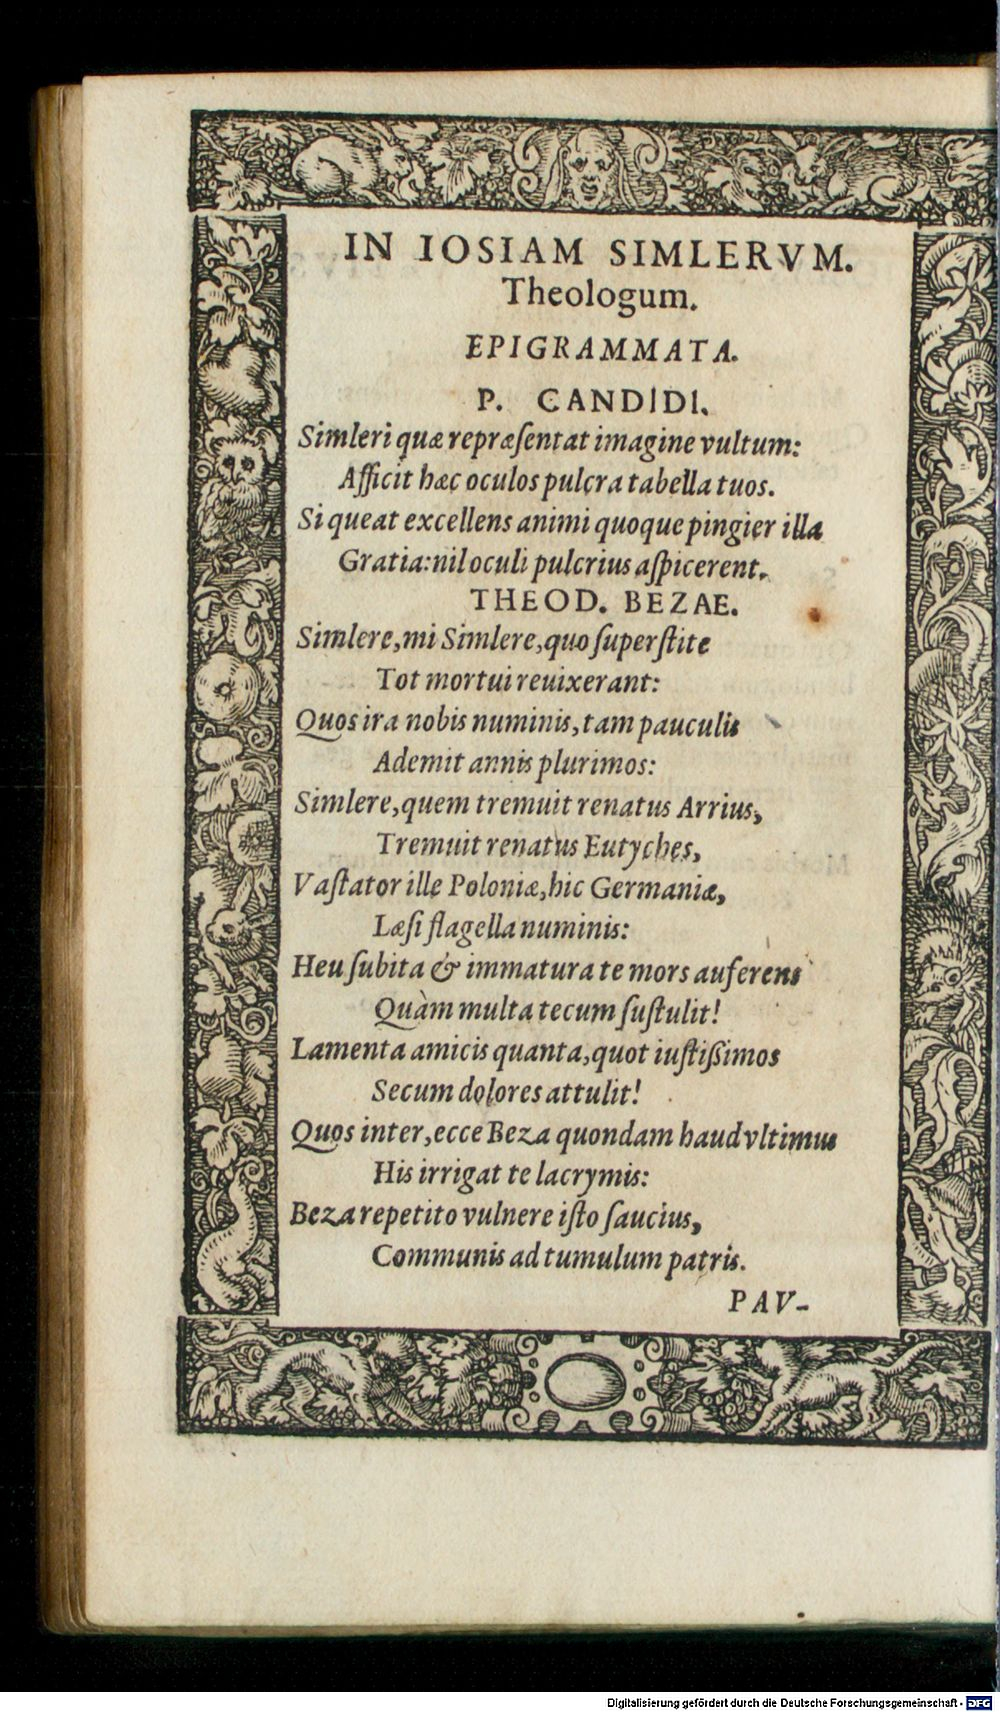 IN IOSIAM SIMLERVM.
Theologum.
EPIGRAMMATA.
P. CANDIDI.
Simleri quæ repræſentat imagine vultum:
Afficit hæc oculos pulcra tabella tuos.
Si queat excellens animi quoque pingier illa
Gratia: nil oculi pulcrius aſpicerent.
THEOD. BEZAE.
Simlere, mi Simlere, quo ſuperſtite
Tot mortui reuixerant:
Quos ira nobis numinis, tam pauculis
Ademit annis plurimos:
Simlere, quem tremuit renatus Arrius,
Tremuit renatus Eutyches,
Vaſtator ille Poloniæ, hic Germaniæ,
Læſi flagella numinis:
Heu ſubita & immatura te mors auferens
Quàm multa tecum ſuſtulit!
Lamenta amicis quanta, quot iuſtißimos
Secum dolores attulit!
Quos inter, ecce Beza quondam haud vltimus
His irrigat te lacrymis:
Beza repetito vulnere iſto ſaucius,
Communis ad tumulum patris.
PAV-
Digitalisierung gefördert durch die Deutsche Forschungsgemeinschaft - DFG